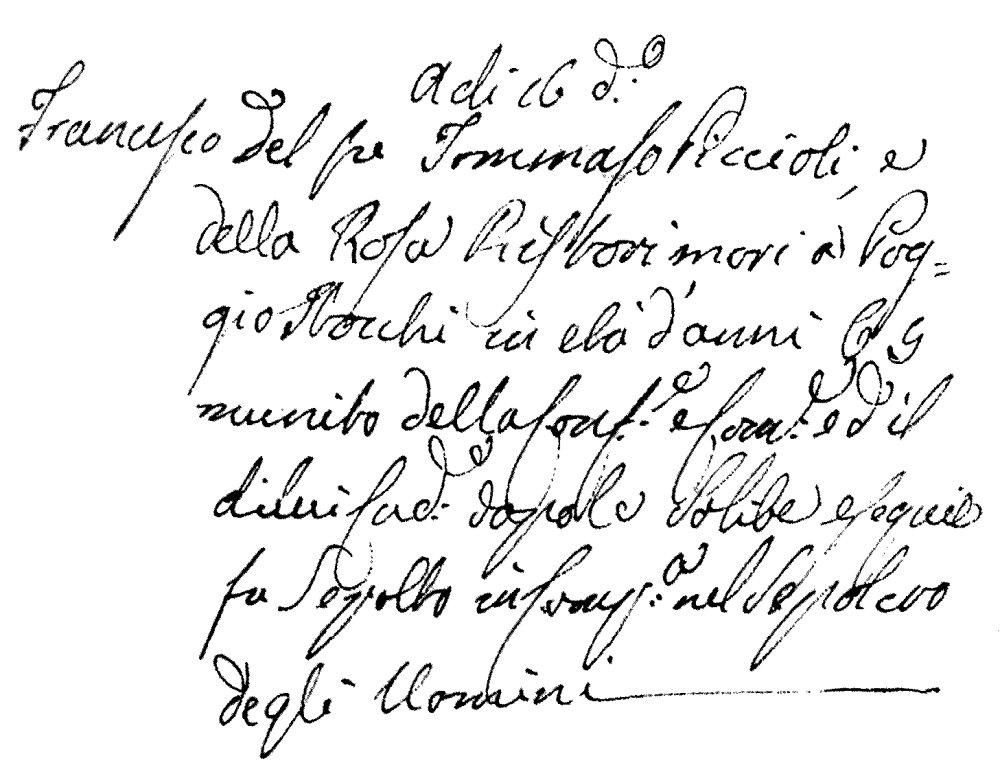 Adi 16 d.º
Francesco del fu Tommaso Piccioli, e
della Rosa Ristori morì à Pog=
gio Stocchi in età d'anni 65
munito della Conf.e e Com.e ed il
di lui Cad.e dopo le solite esequie
fu Sepolto in Comp.a nel Sepolcro
degli Uomini